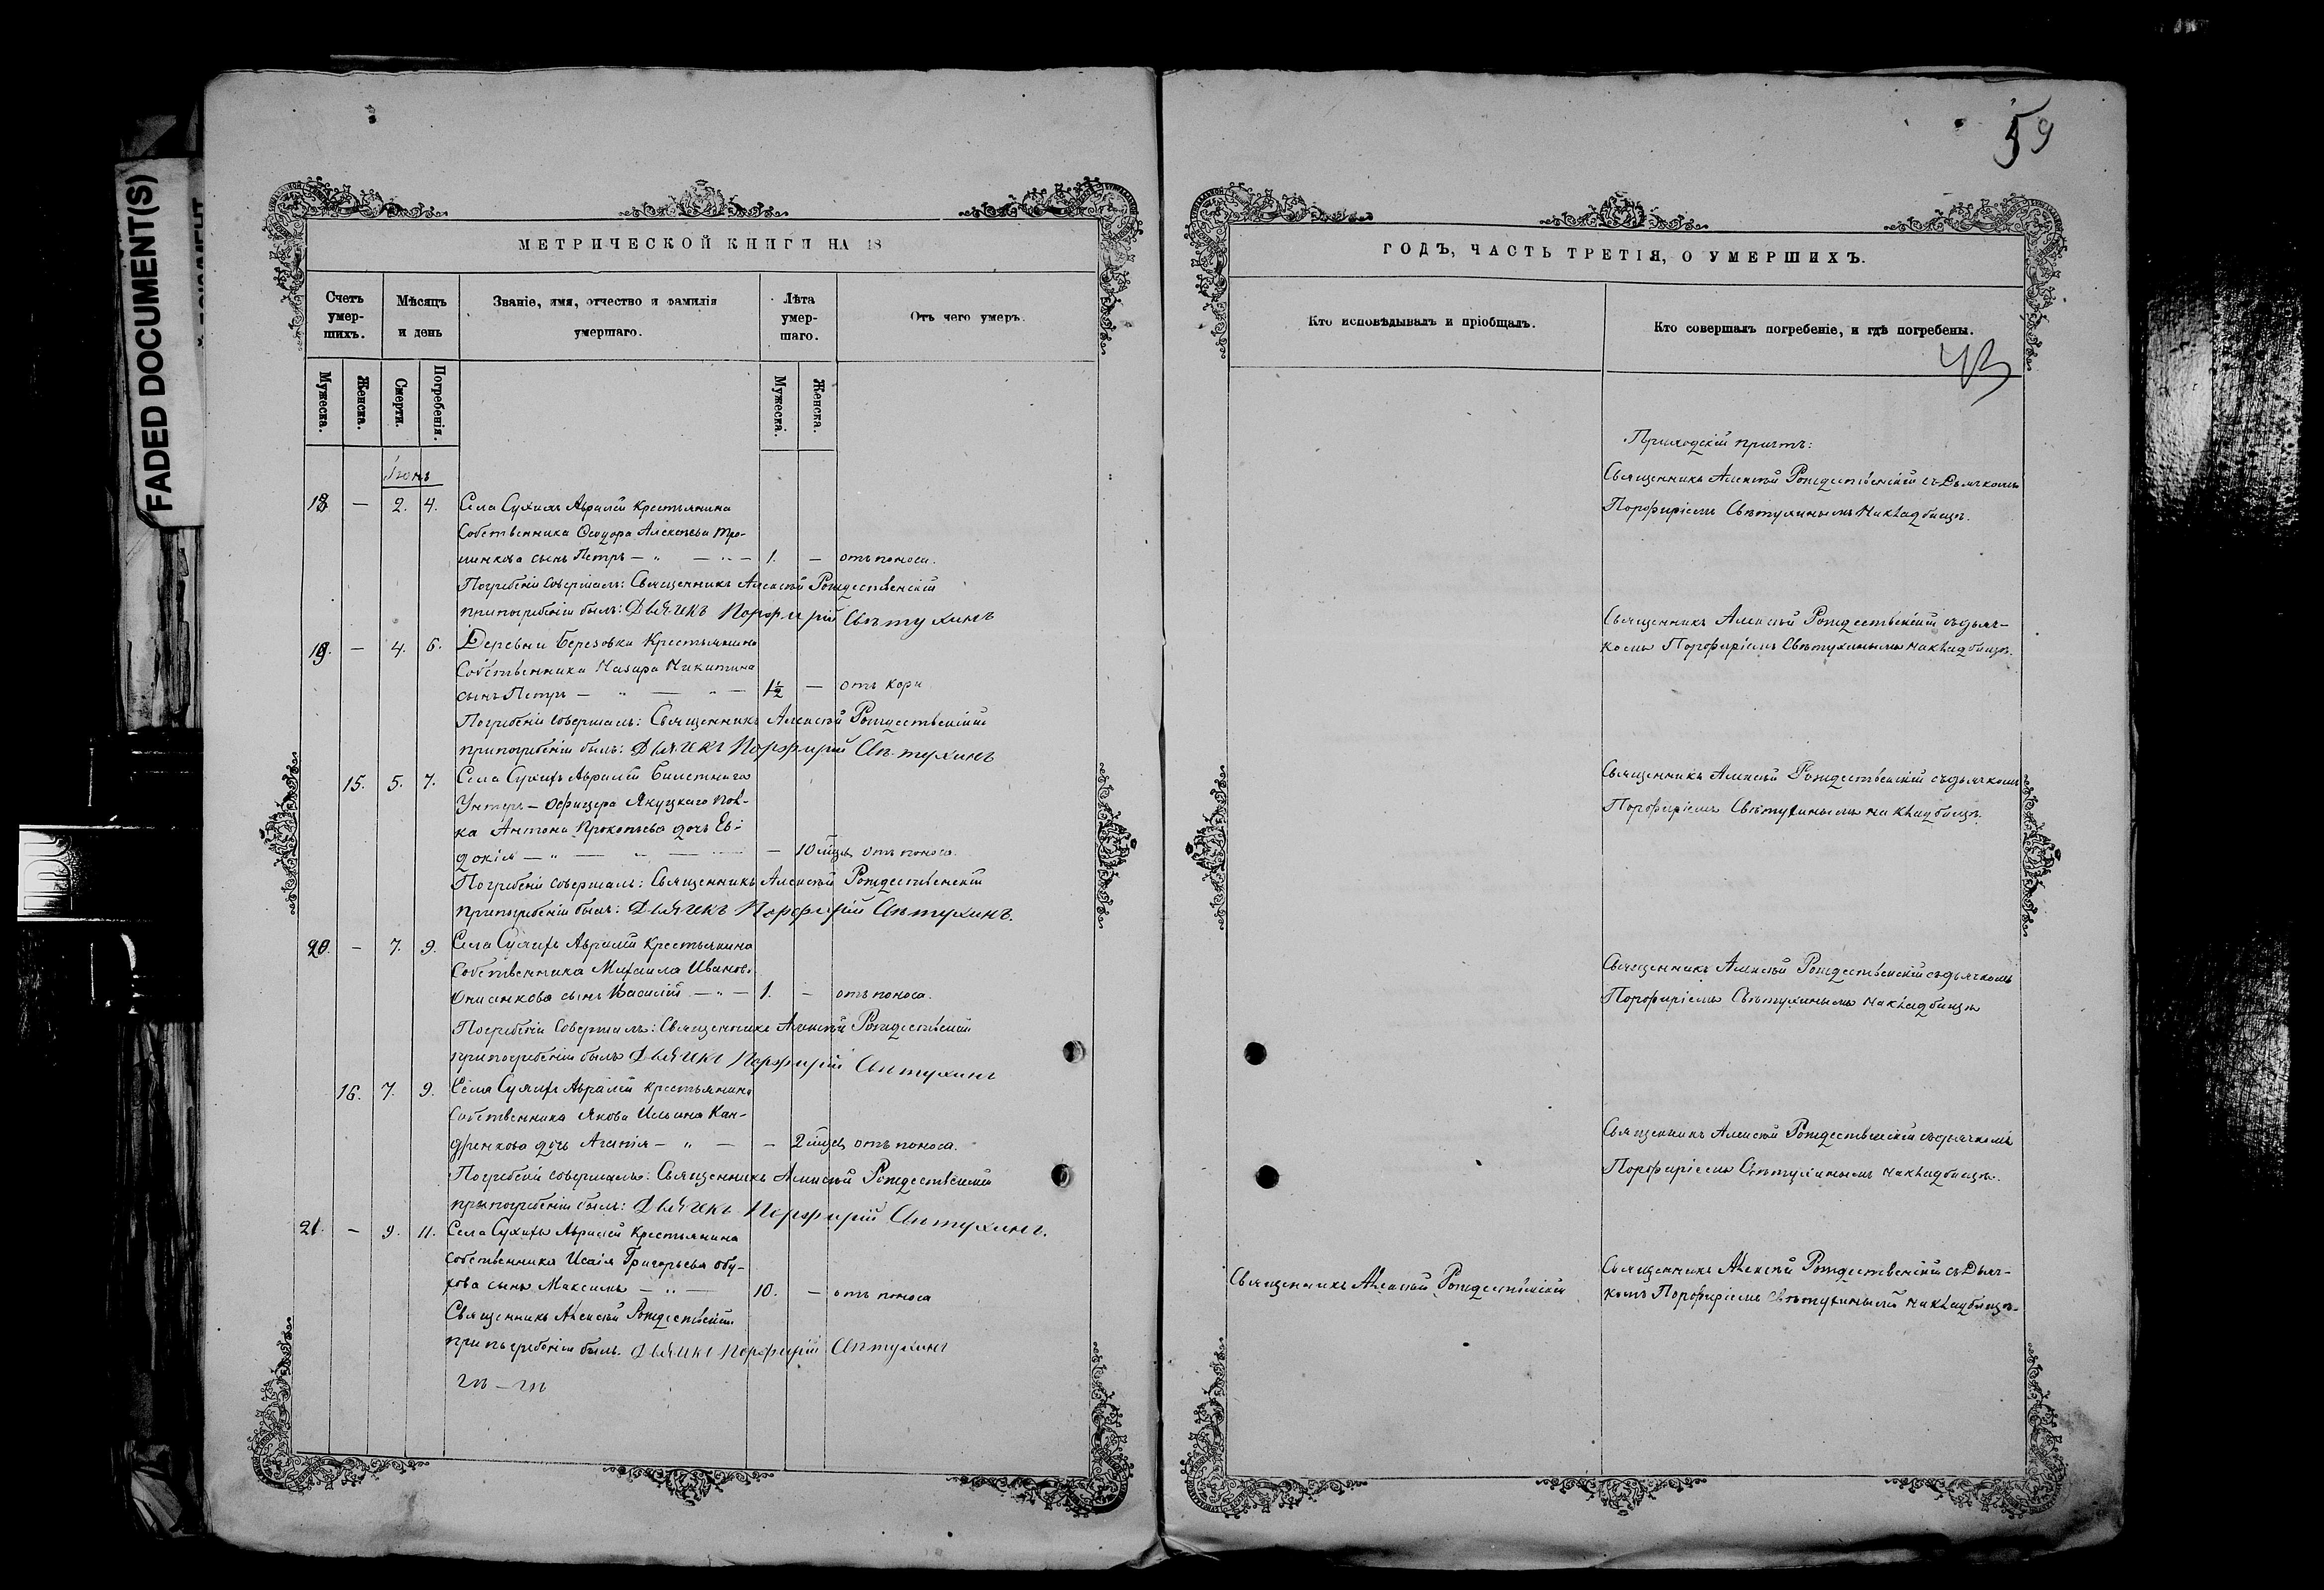 59
FADED DOCUMENT(S)
МЕТРИЧЕСКОЙ КНИГИ НА 18
Счетъ умер-шихъ.
Мѣсяцъ и день
Званіе, имя, отчество и фамилія умершаго.
Лѣта умер-шаго.
Отъ чего умеръ.
Мужеска. Женска. Смерти. Погребенія. Мужеска. Женска.
Іюнь
18 — 2. 4. Села Сухихъ Авралей Крестьянина
Собственника Ѳеодора Алексѣева
сынъ Петръ — „ — „ — 1. — отъ поноса.
Погребеніе совершалъ: Священникъ Алексѣй Рождественскій
при погребеніи былъ: Дьячекъ Порфирій Свѣтухинъ
19. — 4. 6. Деревни Березовки Крестьянина
Собственника Назара Никитина
сынъ Петръ — „ — „ — 1½ — отъ кори
Погребеніе совершалъ: Священникъ Алексѣй Рождественскій
при погребеніи былъ: Дьячекъ Порфирій Свѣтухинъ
15. 5. 7. Села Сухихъ Авралей Билетнаго
Унтеръ-Офицера Якуцкаго пол-
ка Антона Прокопьева дочь Ев-
докія — „ — „ — — 10 мѣцъ отъ поноса.
Погребеніе совершалъ: Священникъ Алексѣй Рождественскій
при погребеніи былъ: Дьячекъ Порфирій Свѣтухинъ.
20. — 7. 9. Села Сухихъ Авралей Крестьянина
Собственника Михаила Иванова
Онисикова сынъ Василій — „ — 1. — отъ поноса.
Погребеніе Совершалъ: Священникъ Алексѣй Рождественскій
при погребеніи былъ Дьячекъ Порфирій Свѣтухинъ
16. 7. 9. Села Сухихъ Авралей Крестьянина
Собственника Якова Ильина Кан-
дренкова дочь Агапія — „ — — 2 мѣца отъ поноса.
Погребеніе совершалъ: Священникъ Алексѣй Рождественскій
при погребеніи былъ: Дьячекъ Порфирій Свѣтухинъ.
21. — 9. 11. Села Сухихъ Авралей Крестьянина
собственника Исаія Григорьева Обу-
хова сынъ Максимъ — „ — 10. — отъ поноса
Священникъ Алексѣй Рождественскій
при погребеніи былъ. Дьячекъ Порфирій Свѣтухинъ
ГОДЪ, ЧАСТЬ ТРЕТІЯ, О УМЕРШИХЪ.
Кто исповѣдывалъ и пріобщалъ.
Кто совершалъ погребеніе, и гдѣ погребены.
Приходскій причтъ:
Священникъ Алексѣй Рождественскій съ Дьячкомъ
Порфиріемъ Свѣтухинымъ на кладбищѣ.
Священникъ Алексѣй Рождественскій съ дьяч-
комъ Порфиріемъ Свѣтухинымъ на кладбищѣ.
Священникъ Алексѣй Рождественскій съ дьячкомъ
Порфиріемъ Свѣтухинымъ на кладбищѣ.
Священникъ Алексѣй Рождественскій съ дьячкомъ
Порфиріемъ Свѣтухинымъ на кладбищѣ
Священникъ Алексѣй Рождественскій съ дьячкомъ
Порфиріемъ Свѣтухинымъ на кладбищѣ.
Священникъ Алексѣй Рождественскій
Священникъ Алексѣй Рождественскій съ Дьяч-
комъ Порфиріемъ Свѣтухинымъ на кладбищѣ.